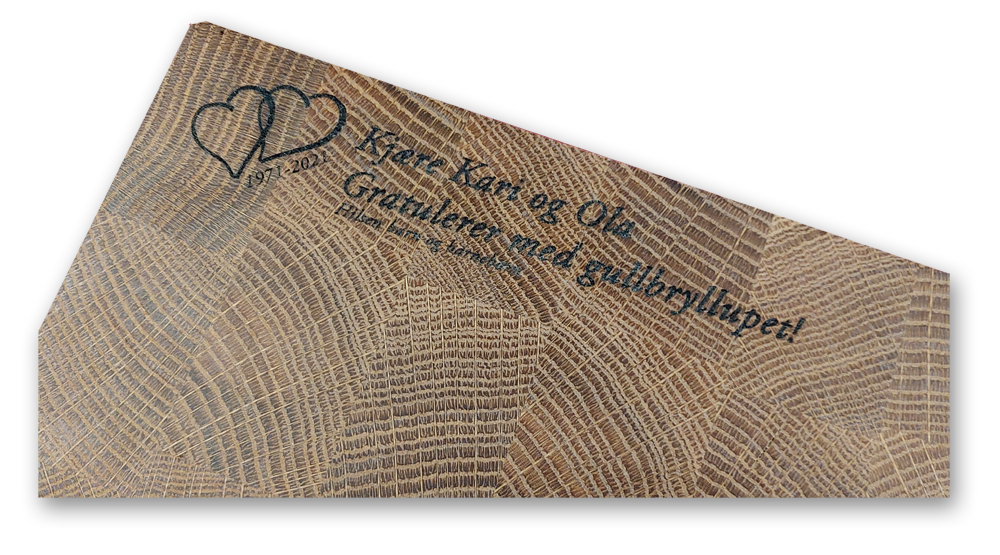 1971-2021
Kjære Kari og Ola
Gratulerer med gullbryllupet!
Hilsen barn og barnebarn